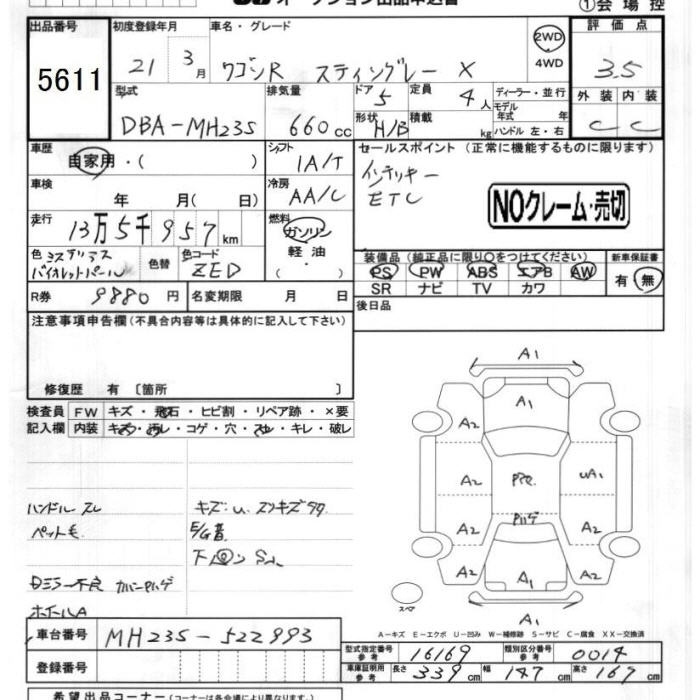 オークション出品申込書
①会場控
出品番号 初度登録年月 車名・グレード 評価点
5611 21 3月 ワゴンR スティングレー X 2WD・4WD 3.5
型式 排気量 ドア 5 定員 4人 ディーラー・並行 外装 内装
DBA-MH23S 660cc 形状 H/B 積載 kg モデル年式 年 ハンドル 左・右 C C
車歴 自家用・( ) シフト IA/T セールスポイント (正常に機能するものに限ります)
車検 年 月( 日) 冷房 AA/C インテリキー
ETC
NOクレーム・売切
走行 13万5千957km 燃料 ガソリン 軽油・
色 ミステリアスバイオレットパール 色替 色コード ZED
装備品 (純正品に限り○をつけてください) 新車保証書
PS PW ABS エアB AW 有 無
SR ナビ TV カワ
R券 9880円 名変期限 月 日 後日品
注意事項申告欄 (不具合内容等は具体的に記入して下さい)
修復歴 有 〔箇所 〕
検査員 FW キズ・飛石・ヒビ割・リペア跡・×要
記入欄 内装 キズ・汚レ・コゲ・穴・スレ・キレ・破レ
ハンドル スレ キズ:U. スリキズ
ペット毛 E/G音
ドミラー不良 カバーワレ
ホイールA
A1
A1
A2
A2
uA1
A2
A2
A2
A2
A1
A1
スペア
A-キズ E-エクボ U-凹み W-補修跡 S-サビ C-腐食 XX-交換済
車台番号 MH23S-522993
登録番号
型式指定番号 参考 16169 類別区分番号 参考 0014
車庫証明用 参考 長さ 339cm 幅 147cm 高さ 167cm
希望出品コーナー (コーナーは各会場により異なります。)